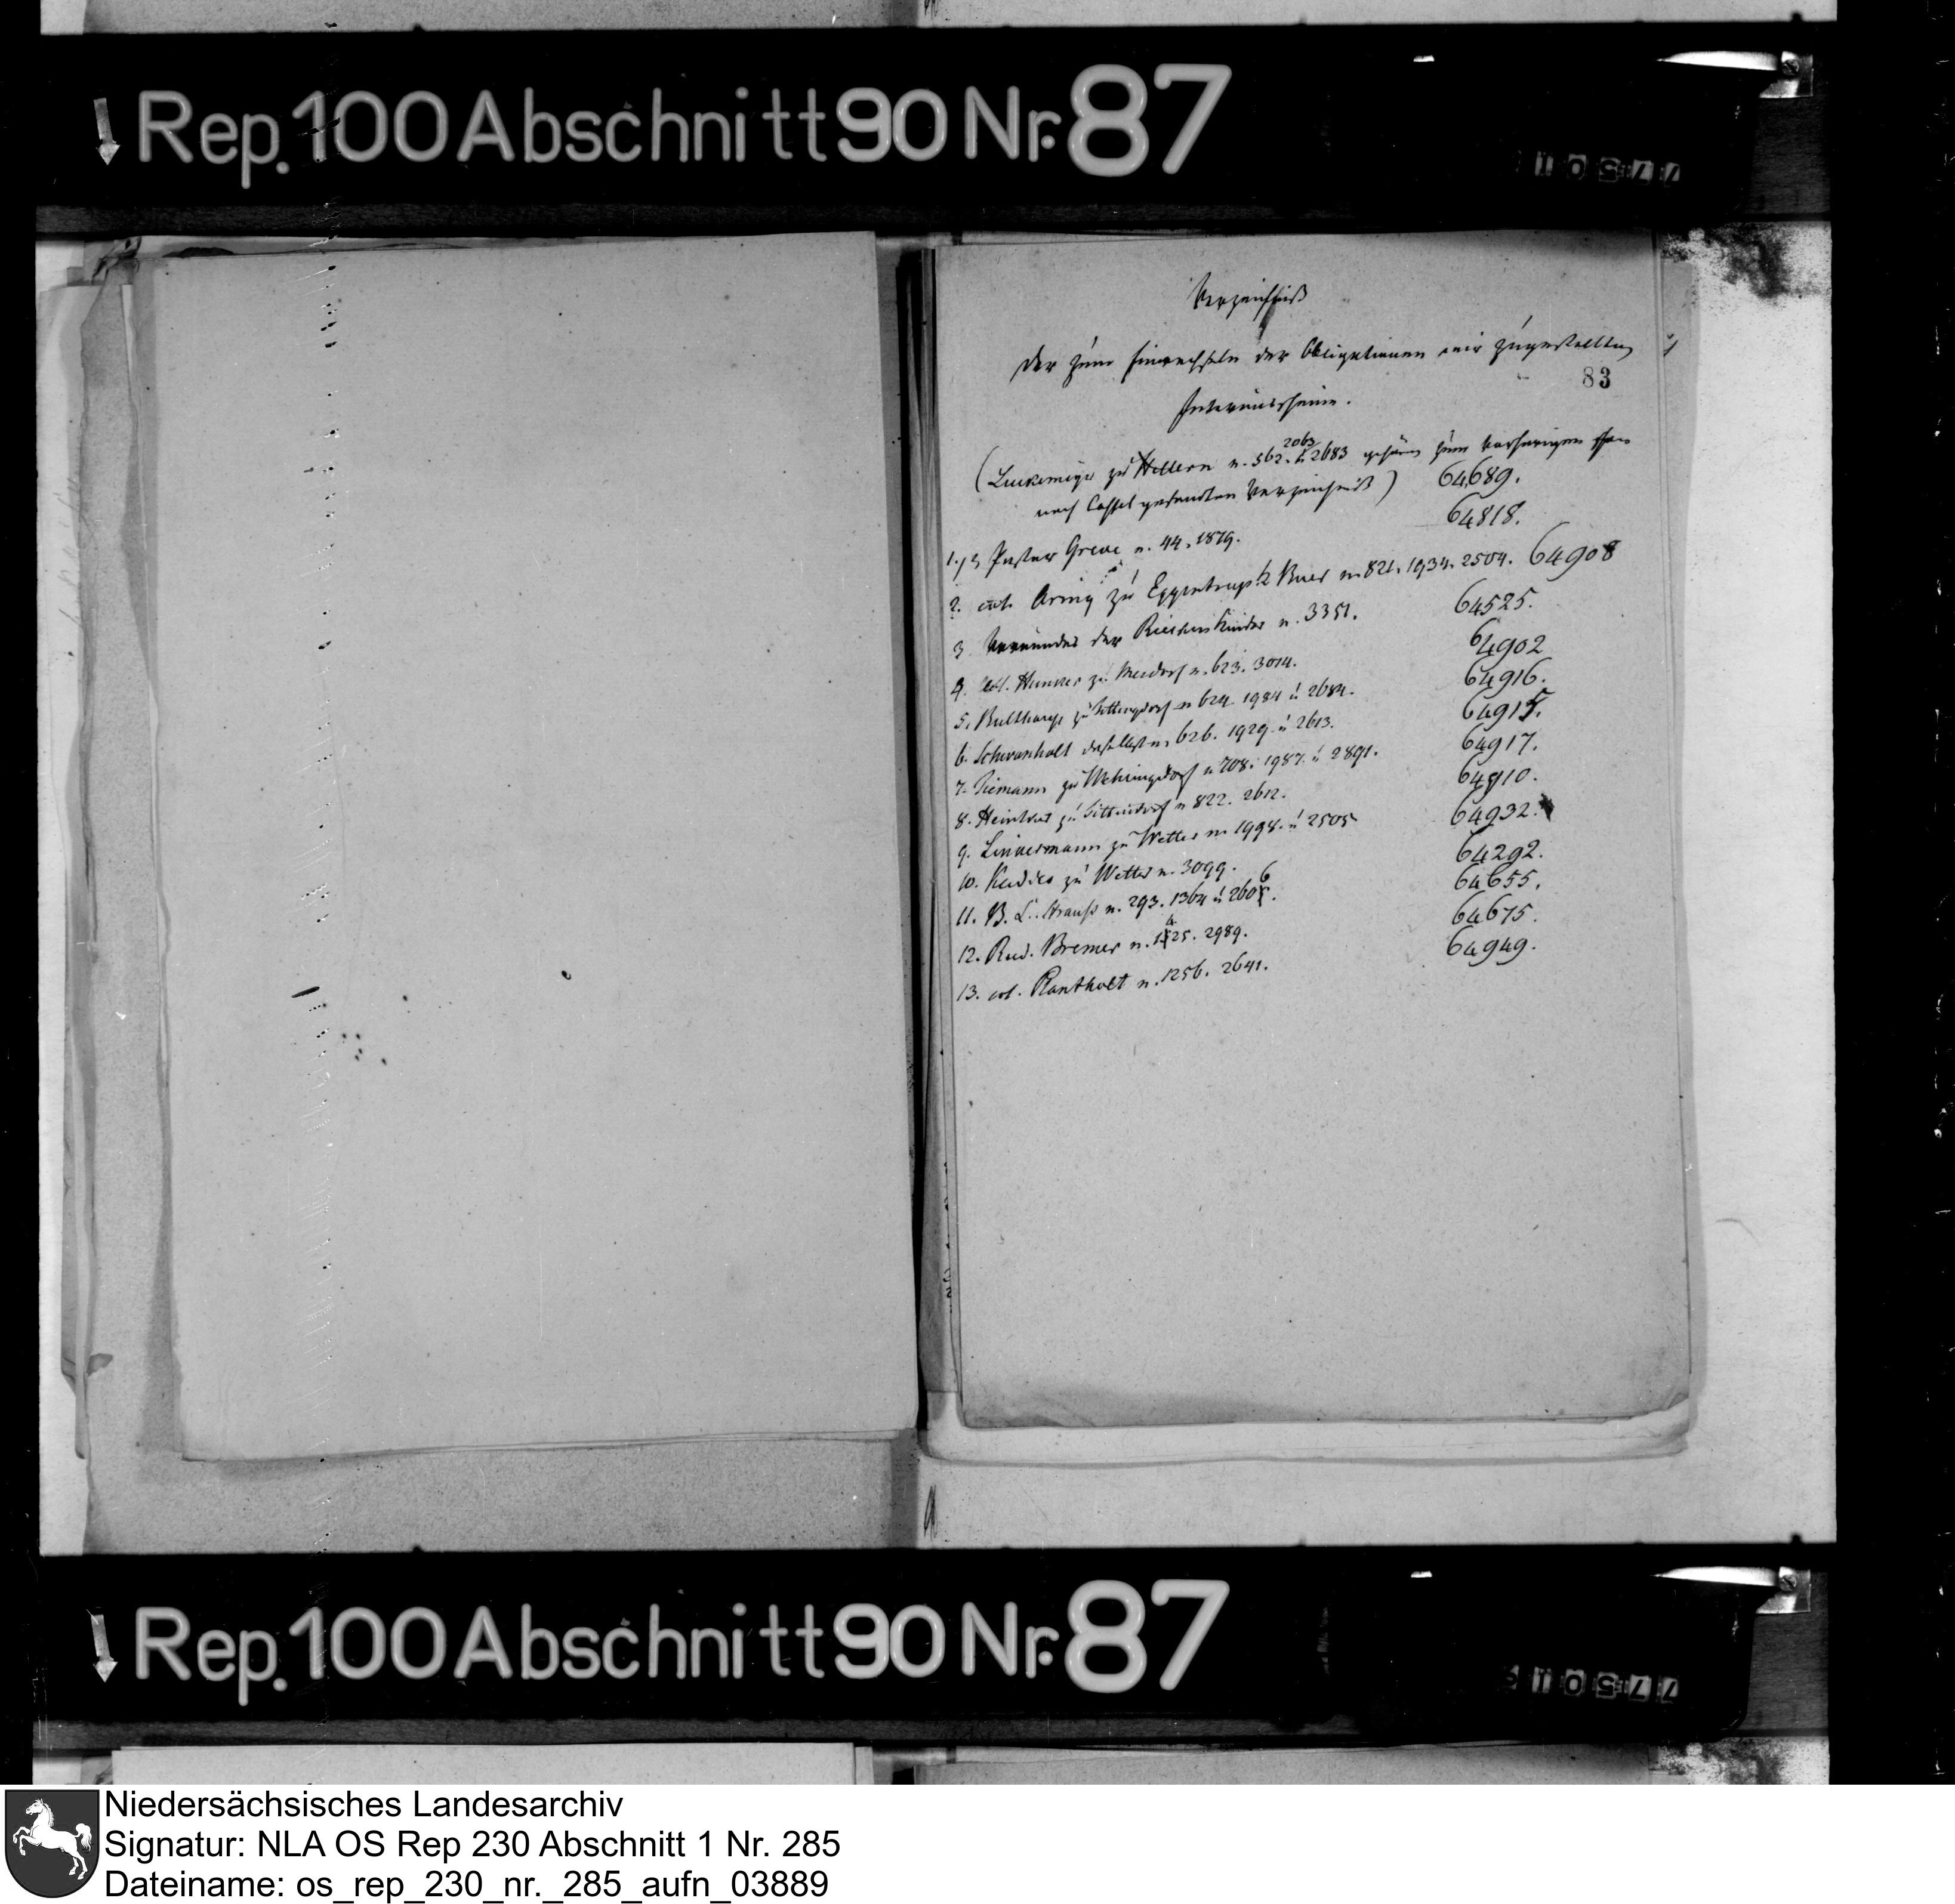 Rep. 100 Abschnitt 90 Nr. 87
77501
Verzeichniß
der zum Einwechseln der Obligationen mir zugestellten
83
Interimsscheine.
2063
(Luckemeyer zu Hellern n. 562. u 2683 gehören zum vorherigen
nach Cassel gesandten Verzeichniß) 64689.
64818.
1. Pastor Greve n. 44. 1879.
2. col. Aring zu Eggentrup u Buer n. 821. 1934. 2504. 64908
3 Vormünder der Kinder n. 3351. 64525.
4. col. Hunker zu n. 623. 3014. 64902
5. zu n 624. 1984 u 2684. 64916.
6. Schwanholt daselbst n. 626. 1929. u 2613. 64915.
7. Tiemann zu Wehringdorf n 708. 1987. u 2891. 64917.
8. zu n 822. 2612. 64910.
9. Linnermann zu Wetter n. 1998. u 2505 64932.
10. zu Wetter n. 3099. 64292.
11. B. L. Strauß n. 293. 1364 u 2606. 64655.
12. Rud. Bremer n. 1425. 2989. 64675.
13. col. Plantholt n. 1256. 2641. 64949.
Rep. 100 Abschnitt 90 Nr. 87
77501
Niedersächsisches Landesarchiv
Signatur: NLA OS Rep 230 Abschnitt 1 Nr. 285
Dateiname: os_rep_230_nr._285_aufn_03889